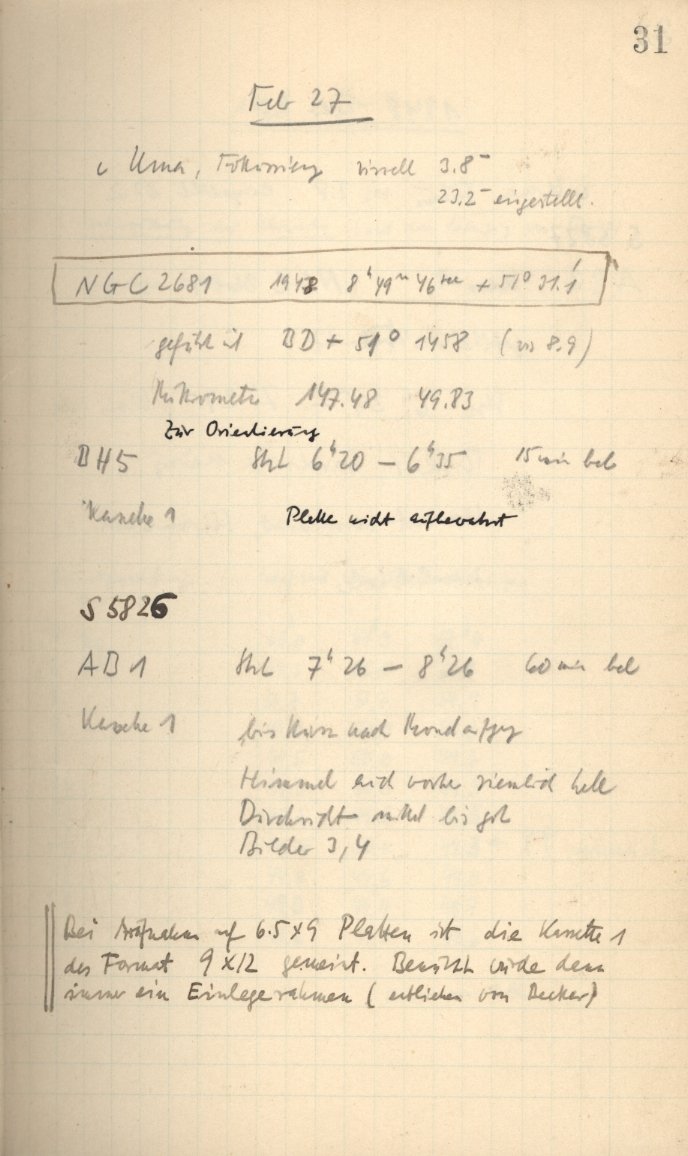 31
Feb 27
ι Uma, Fokussierung visuell 3.8
23.2 eingestellt.
NGC 2681 1948 8ʰ 49ᵐ 46ˢᵉᶜ + 51° 31.1'
geführt mit BD + 51° 1458 (vis 8.9)
Mikrometer 147.48 49.83
Zur Orientierung
BH5 6ʰ20 – 6ʰ35 15 min bel
Kassette 1 Platte nicht aufbewahrt
S 5826
AB 1 7ʰ26 – 8ʰ26 60 min bel
Kassette 1 bis kurz nach Mondaufgg
Himmel auch vorher ziemlich hell
Durchsicht mittel bis gut
Bilder 3,4
Bei Aufnahmen auf 6.5 x 9 Platten ist die Kassette 1
des Format 9 x 12 gemeint. Benützt würde dann
immer ein Einlegerahmen (entliehen von Becker)